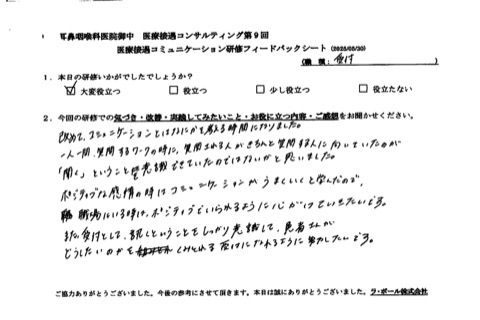 耳鼻咽喉科医院御中 医療接遇コンサルティング第9回
医療接遇コミュニケーション研修フィードバックシート (2025/05/30)
(職種: 受付 )
1. 本日の研修いかがでしたでしょうか?
☑ 大変役立つ □ 役立つ □ 少し役立つ □ 役立たない
2. 今回の研修での気づき・改善・実践してみたいこと・お役に立つ内容・ご感想をお聞かせください。
改めて、コミュニケーションとはなにかを考える時間になりました。
一人一問、質問するワークの時に、質問される人がきちんと質問する人に向いていたのが
「聞く」ということを意識できていたのではないかと思いました。
ポジティブな感情の時はコミュニケーションがうまくいくと学んだので、
職場にいる時は、ポジティブでいられるように心がけていきたいです。
また、受付として、聞くということをしっかり意識して、患者さんが
どうしたいのかを くみとれる受付になれるように努力したいです。
ご協力ありがとうございました。今後の参考にさせて頂きます。本日は誠にありがとうございました。 ラ・ポール株式会社